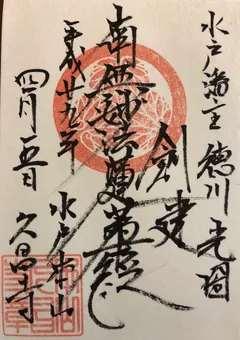 水戸藩主 徳川光圀
創建
南無妙法蓮華経
平成廿九年 水戸本山
四月五日 久昌寺